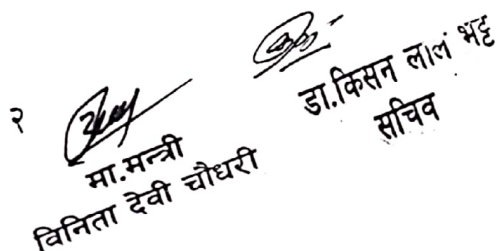 २
मा.मन्त्री
विनिता देवी चौधरी
डा.किसन लाल भट्ट
सचिव